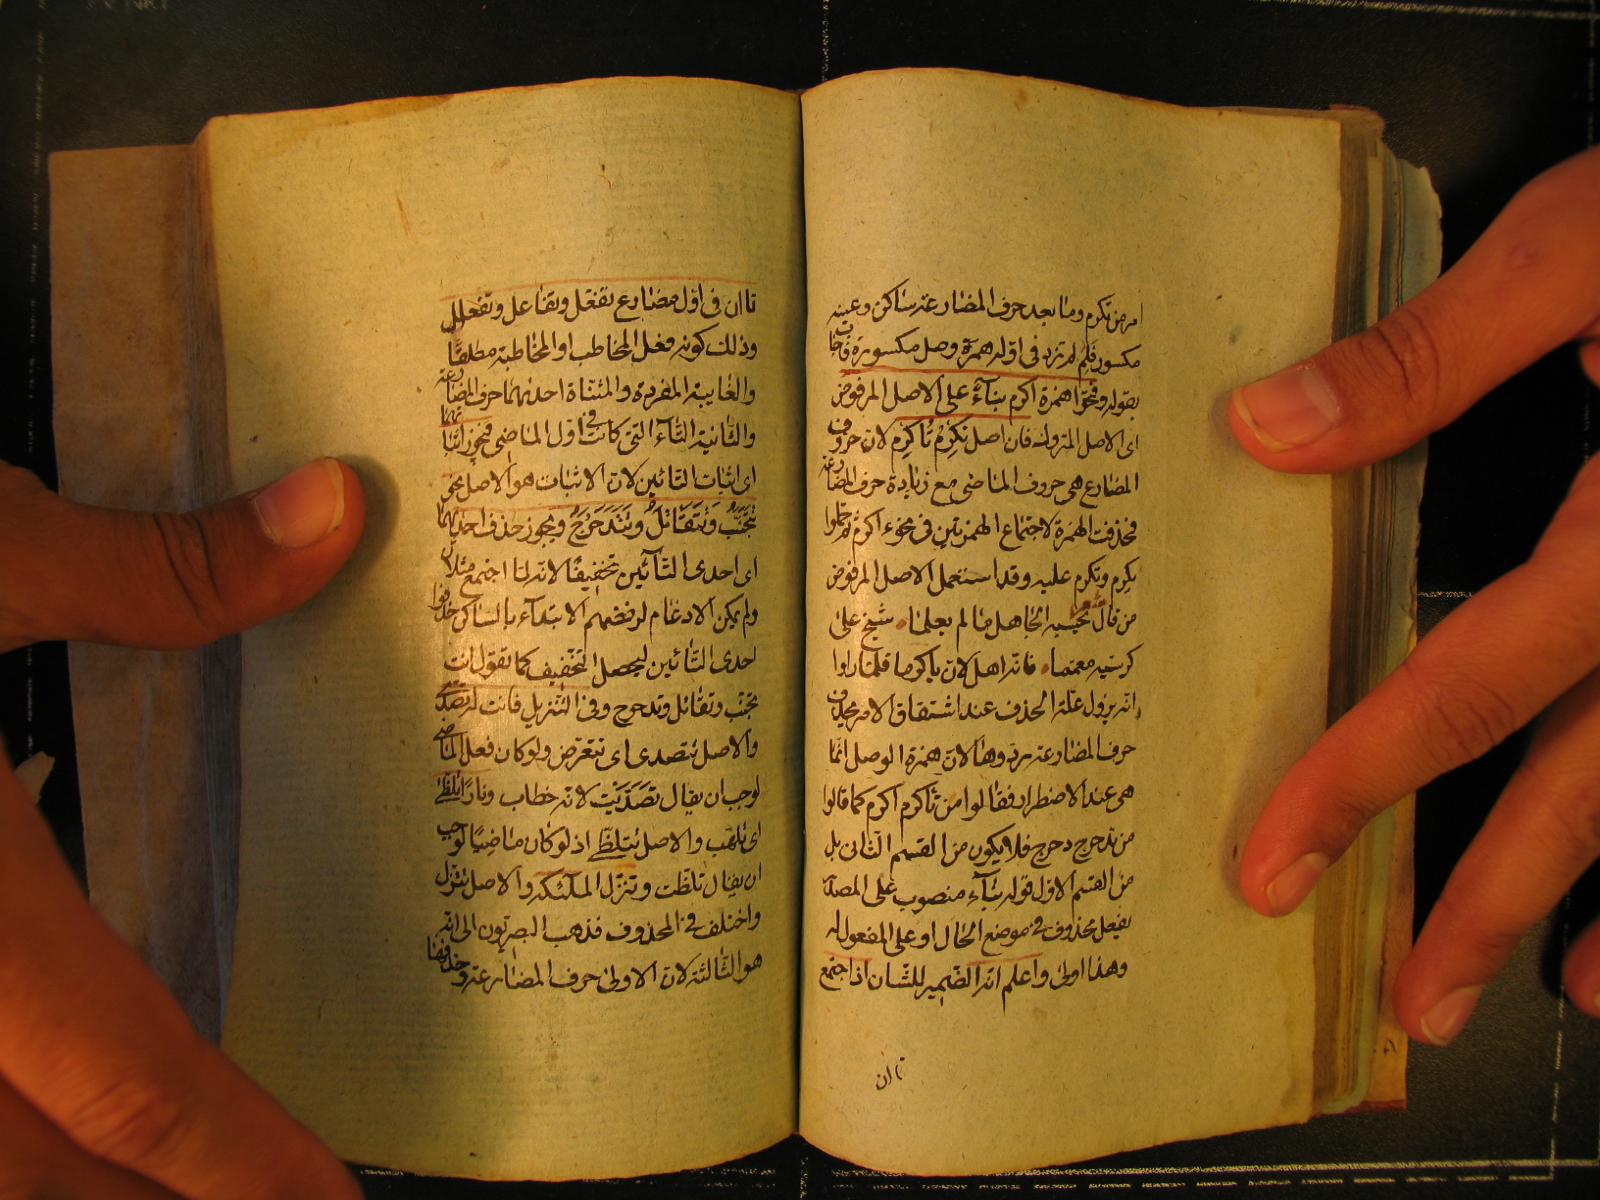 امر من تكرم وما بعد حرف المضارعة ساكن وعينه
مكسور فلم لم تزد فى اوله همزة وصل مكسورة فاجاب
بقوله وفتحوا همزة اكرم بناءً على الاصل المرفوض
اى الاصل المتروك فان اصل تكرم تأكرم لان حروف
المضارع هى حروف الماضى مع زيادة حرف المضارعة
فحذفت الهمزة لاجتماع الهمزتين فى نحو ءاكرم ثم حملوا
يكرم وتكرم عليه وقد استعمل الاصل المرفوض
من قال شعر يحسبه الجاهل ما لم يعلما شيخ على
كرسيه معمما فانه اهل لان ياكرما فلما راوا
انه يزول علة الحذف عند اشتقاق الامر بحذف
حرف المضارعة ردوها لان همزة الوصل انما
هى عند الاضطرار فقالوا من تأكرم اكرم كما قالوا
من تدحرج دحرج فلا يكون من القسم الثانى بل
من القسم الاول قوله بناء منصوب على المصدر
بفعل محذوف فى موضع الحال او على المفعول له
وهذا اولى واعلم انه الضمير للشان اذا اجتمع
تاان
تاان فى اول مضارع تفعّل وتفاعل وتفعلل
وذلك كونه فعل المخاطب او المخاطبة مطلقًا
والغايبة المفردة والمثناة احديهما حرف المضارعة
والثانية التاء التى كانت فى اول الماضى فيجوز اثباتهما
اى اثبات التائين لان الاثبات هو الاصل نحو
تتجنب وتتقاتل وتتدحرج ويجوز حذف احديهما
اى احدى التائين تخفيفًا لانه لما اجتمع مثلان
ولم يمكن الادغام لرفضهم الابتداء بالساكن حذفوا
احدى التائين ليحصل التخفيف كما تقول انت
تجنب وتقاتل وتدحرج وفى التنزيل فانت له تصدى
والاصل تتصدى اى تتعرض ولو كان فعل الماضى
لوجب ان يقال تصديت لانه خطاب ونارا تلظى
اى تلهب والاصل تتلظى اذ لو كان ماضيًا لوجب
ان يقال تلظت وتنزل الملئكة والاصل تتنزل
واختلف فى المحذوف فذهب البصريون الى انه
هو الثانية لان الاولى حرف المضارعة وحذفها